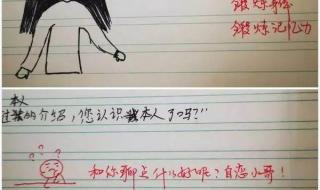 锻炼身体
锻炼记忆力
本人
的介绍，您认识本人了吗？"
和你聊点什么好呢？自恋小哥！